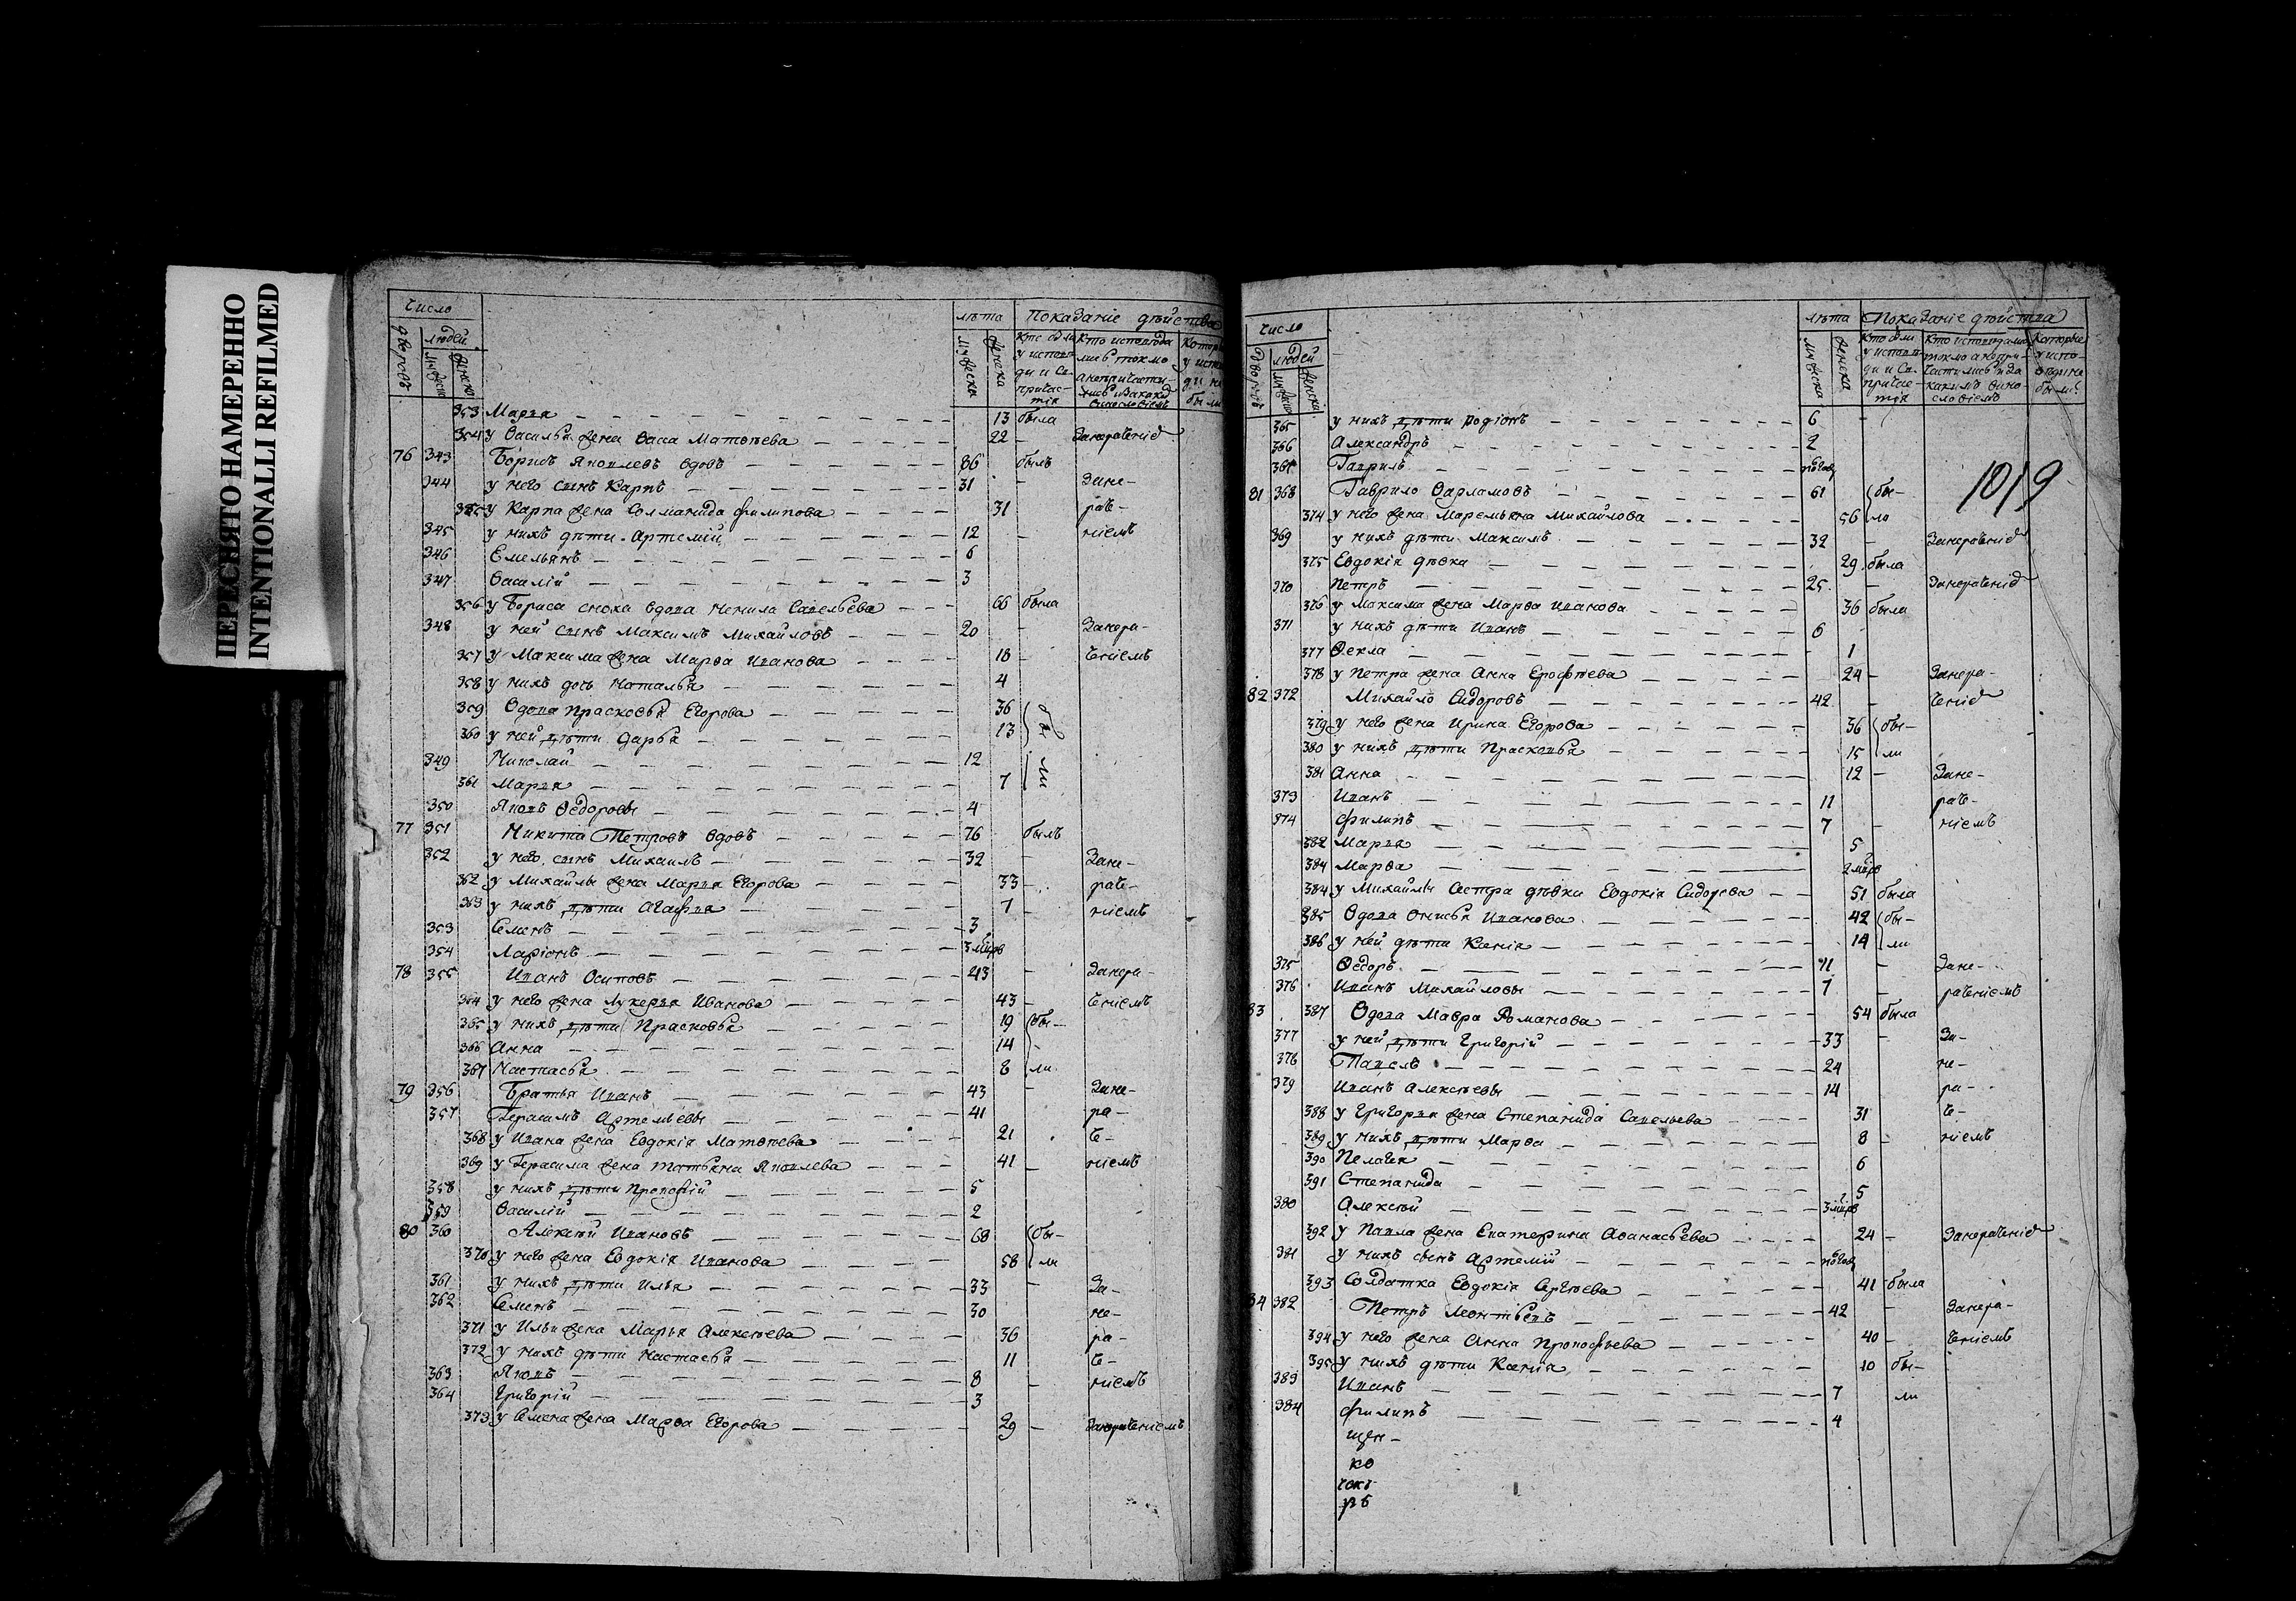 ПЕРЕСНЯТО НАМЕРЕННО
INTENTIONALLI REFILMED
число
лѣта Показаніе дѣйства
дворовъ людей мужеска женска
353 Марья 13 была
354 у Василья жена Васа Матвѣева 22 - Занераченіе
76 343 Борисъ Яковлевъ вдовъ 86 былъ
344 у него сынъ Карпъ 31 - Зане-
355 у Карпа жена Соломанида Филипова 31 - раче-
345 у нихъ дѣти Артемій 12 - ніемъ
346 Емельянъ 6
347 Василій 3
356 у Бориса сноха вдова Ненила Савельева 66 была
348 у ней сынъ Максимъ Михайловъ 20 - Занера-
357 у Максима жена Марѳа Иванова 18 - ченіемъ
358 у нихъ дочь Наталья 4
359 Вдова Прасковья Егорова 36 бы
360 у ней дѣти Дарья 13
349 Николай 12 ли
361 Марья 7
350 Яковъ Ѳедоровы 4
77 351 Никита Петровъ вдовъ 76 былъ
352 у него сынъ Михаилъ 32 - Зане-
362 у Михайлы жена Марья Егорова 33 - раче-
363 у нихъ дѣти Агафья 7 - ніемъ
353 Семенъ 3
354 Ларіонъ 3 мцов
78 355 Иванъ Осиповъ 43 - Занера-
364 у него жена Лукерья Иванова 43 - ченіемъ
365 у нихъ дѣти Прасковья 19 бы-
366 Анна 14
367 Настасья 8 ли
79 356 Братья Иванъ 43 - Зане-
357 Герасимъ Артемьевы 41 ра-
368 у Ивана жена Евдокія Матвѣева 21 че-
369 у Герасима жена Татьяна Яковлева 41 - ніемъ
358 у нихъ дѣти Прокофій 5
359 Василій 2
80 360 Алексѣй Ивановъ 68 бы-
370 у него жена Евдокія Иванова 58 ли
361 у нихъ дѣти Илья 33 - За-
362 Семенъ 30 не-
371 у Ильи жена Марья Алексѣева 36 ра-
372 у нихъ дѣти Настасья 11 че-
363 Яковъ 8 - ніемъ
364 Григорій 3
373 у Семена жена Марѳа Егорова 29 - Занераченіемъ
число
лѣта Показаніе дѣйства
дворовъ людей мужеска женска
1019
365 у нихъ дѣти Родіонъ 6 -
366 Александръ 2
367 Гаврилъ полгод
81 368 Гаврило Варламовъ 61 бы-
374 у него жена Маремьяна Михайлова 56 ло
369 у нихъ дѣти Максимъ 32 - Занераченіе
375 Евдокія дѣвка 29 была
370 Петръ 25 - Занераченіе
376 у Максима жена Марѳа Иванова 36 была
371 у нихъ дѣти Иванъ 6 -
377 Ѳекла 1
378 у Петра жена Анна Ерофѣева 24 - Занера-
82 372 Михайло Сидоровъ 42 - ченіе
379 у него жена Ирина Егорова 36 бы-
380 у нихъ дѣти Прасковья 15 ли
381 Анна 12 - Зане-
373 Иванъ 11 раче-
374 Филипъ 7 - ніемъ
382 Марья 5
384 Марѳа 2 мцов
384 у Михайлы сестра дѣвка Евдокія Сидорова 51 была
385 Вдова Онисья Иванова 42 бы-
386 у ней дѣти Ксенія 14 ли
375 Ѳедоръ 11 - Зане-
376 Иванъ Михайловы 7 - раченіемъ
83 387 Вдова Мавра Романова 54 была
377 у ней дѣти Григорій 33 - За-
378 Павелъ 24 не-
379 Иванъ Алексѣевы 14 ра-
388 у Григорья жена Степанида Савельева 31 че-
389 у нихъ дѣти Марѳа 8 - ніемъ
390 Пелагея 6
391 Степанида 5
380 Алексѣй 3 мцов
392 у Павла жена Екатерина Аѳанасьева 24 - Занераченіе
381 у нихъ сынъ Артемій полгод
393 Солдатка Евдокія Сергѣева 41 была
84 382 Петръ Леонтьевъ 42 - Занера-
394 у него жена Анна Прокофьева 40 - ченіемъ
395 у нихъ дѣти Ксенія 10 бы-
383 Иванъ 7 ли
384 Филипъ 4
щен-
ко